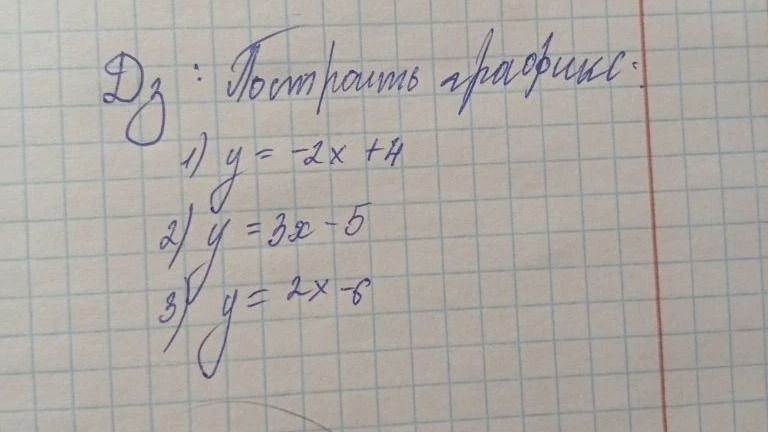 Дз: Построить график:
1) y = -2x + 4
2) y = 3x - 5
3) y = 2x - 6